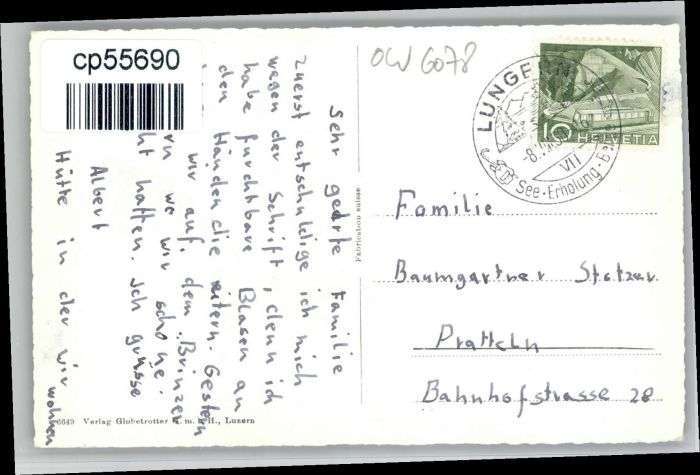 cp55690
OW 6078
LUNGERN
-8.
VII
See-Erholung
10 HELVETIA
Sehr geehrte Familie
zuerst entschuldige ich mich
wegen der Schrift, denn ich
habe furchtbare Blasen an
den Händen die eitern. Gestern
wir auf dem Brünzer
rn wo wir schöne
ht hatten. Ich grüsse
Albert
Hütte in der wir wohnen
Fabrication suisse
Familie
Baumgartner Stotzer
Pratteln
Bahnhofstrasse 28
6649 Verlag Globetrotter m. b. H., Luzern